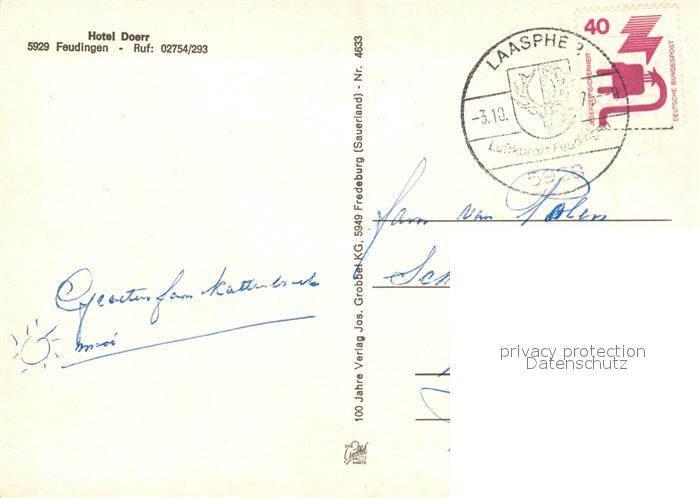 Hotel Doerr
5929 Feudingen - Ruf: 02754/293
100 Jahre Verlag Jos. Grobbel KG, 5949 Fredeburg (Sauerland) - Nr. 4633
40
JEDERZEIT SICHERHEIT
DEUTSCHE BUNDESPOST
LAASPHE 2
-3.10.
Luftkurort Feudingen
5928
Fam van
Groeten fam
mooi
privacy protection
Datenschutz
EINE
Grobbel
KARTE